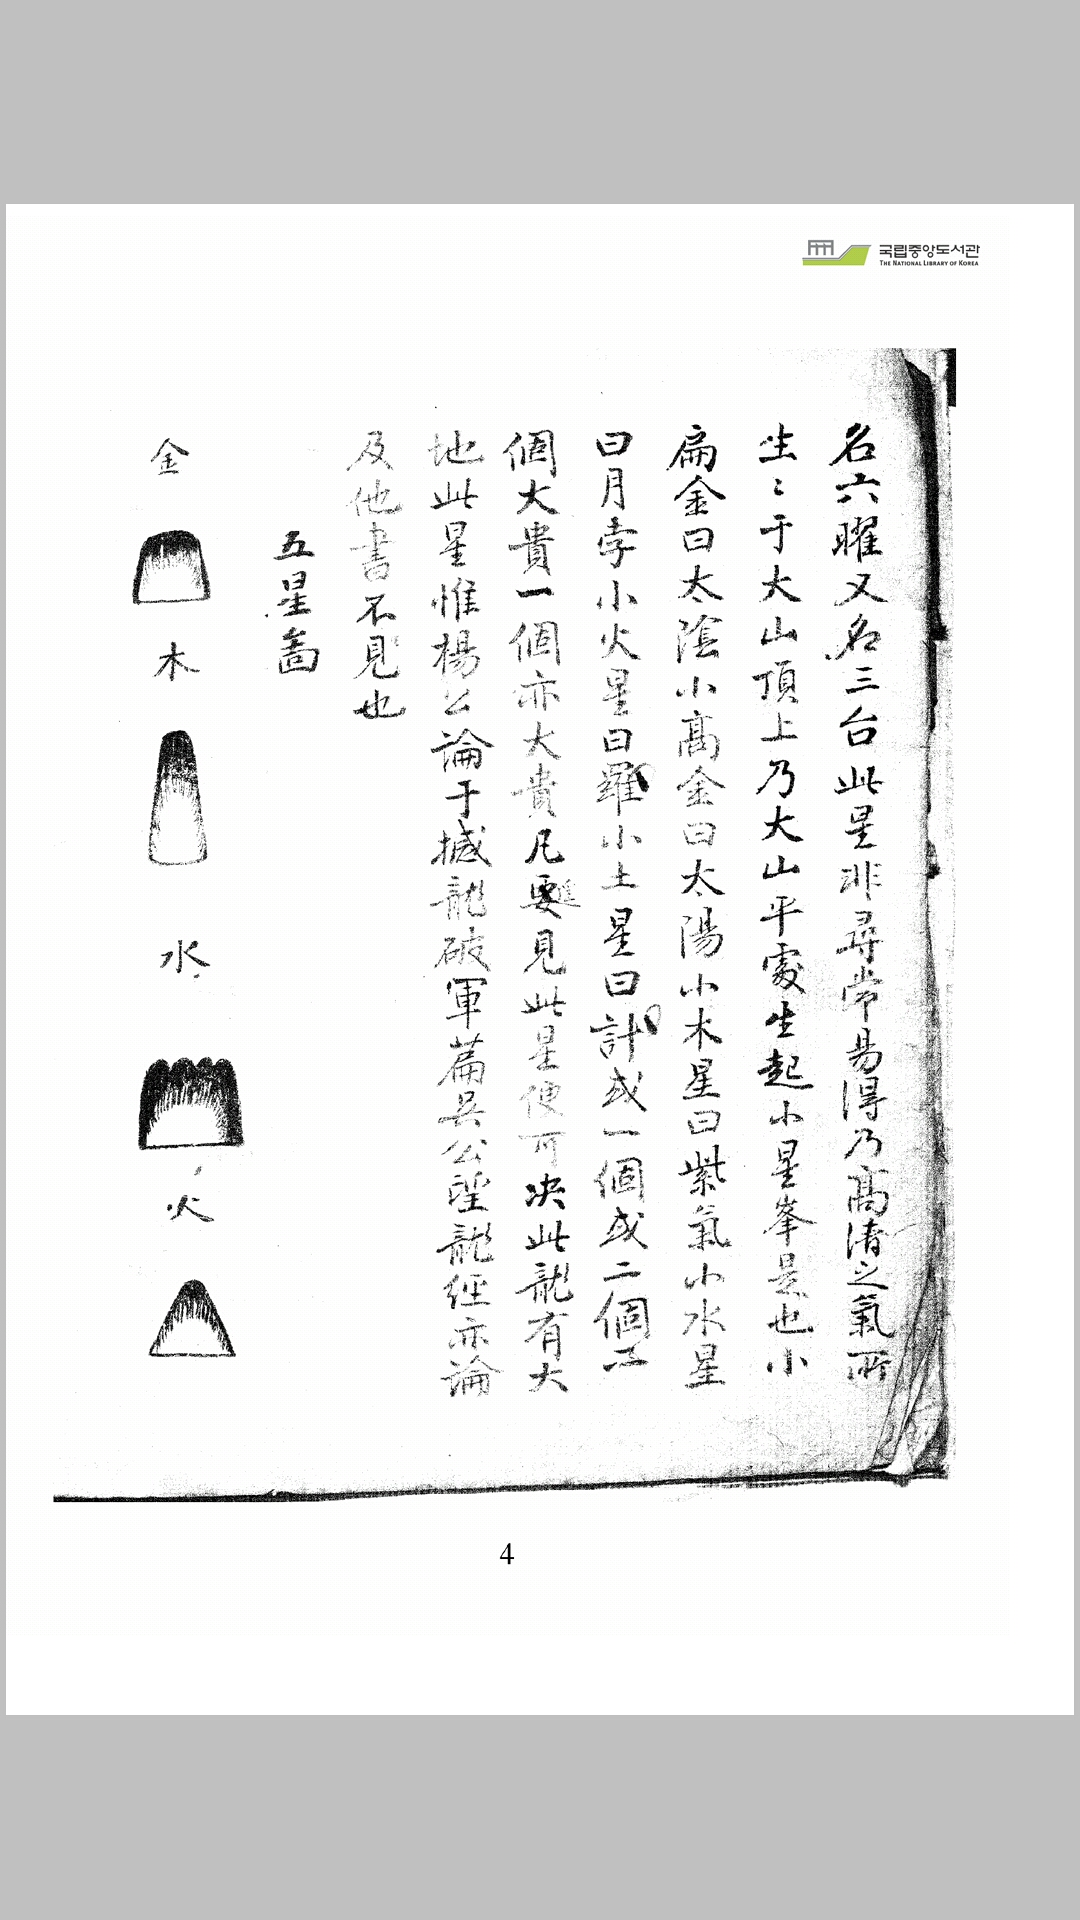 국립중앙도서관
THE NATIONAL LIBRARY OF KOREA
名六曜又名三台此星非尋常易得乃高清之氣所
生〻于大山頂上乃大山平處生起小星峯是也小
扁金曰太陰小高金曰太陽小木星曰紫氣小水星
曰月孛小火星曰羅小土星曰計或一個或二個
個大貴一個亦大貴凡要見此星便可决此龍有大
地此星惟楊公論于撼龍破軍篇吳公龍經亦論
及他書不見也
五星啚
金
木
水
火
4